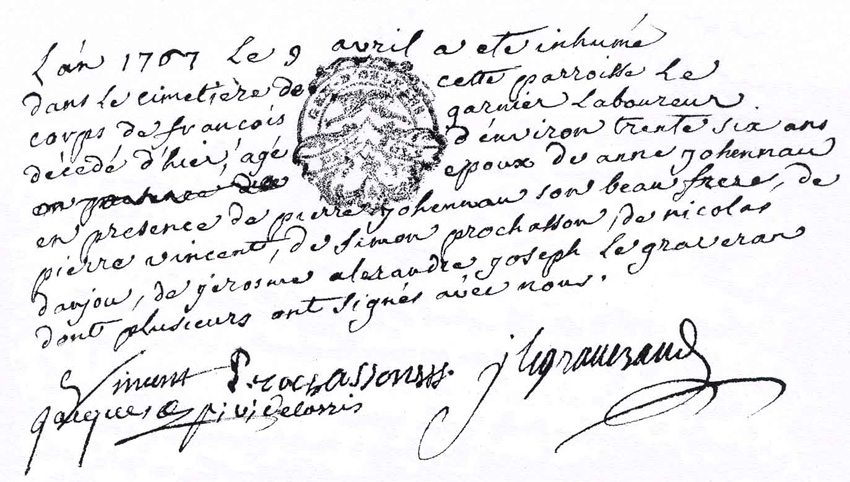 L'an 1767 Le 9 avril a eté inhumé
dans le cimetière de cette parroisse Le
corps de françois garnier Laboureur
décédé d'hier, agé d'environ trente six ans
en presence de epoux de anne johennau
en presence de pierre johennau son beau frere, de
pierre vincent, de simon prochasson, de nicolas
danjou, de jérosme alexandre joseph le graveran
dont plusieurs ont signés avec nous.
Vincent Prochasson jlegraverand
jacques